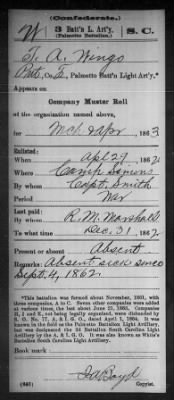 (Confederate.)
W 3 Batt'n L. Art'y. S. C.
(Palmetto Battalion.)
T. A. Wingo
Pvt, Co. E, Palmetto Batt'n Light Art'y.*
Appears on
Company Muster Roll
of the organization named above,
for Mch & Apr, 1863
Enlisted:
When Apl 29, 1862
Where Camp Simons
By whom Capt. Smith
Period War
Last paid:
By whom R. M. Marshall
To what time Dec. 31, 1862
Present or absent Absent
Remarks: Absent sick since
Sept. 4, 1862
*This battalion was formed about November, 1861, with
three companies, A to C. Seven other companies were added
at various times, the last about June 21, 1862. Companies
H, I and K, not being legally organized, were disbanded by
S. O. No. 77, A. & I. G. O., dated April 1, 1864. It was
known in the field as the Palmetto Battalion Light Artillery,
but was designated the 3d Battalion South Carolina Light
Artillery by the A. & I. G. O. It was also known as White's
Battalion South Carolina Light Artillery.
Book mark:
(642)
Boyd
Copyist.